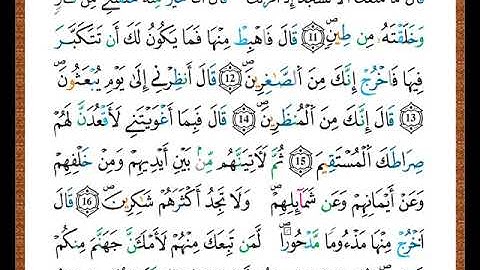 وَخَلَقْتَهُۥ مِن طِينٖۖ 11 قَالَ فَاهْبِطْ مِنْهَا فَمَا يَكُونُ لَكَ أَن تَتَكَبَّرَ
فِيهَا فَاخْرُجْ إِنَّكَ مِنَ اَلصَّٰغِرِينَۖ 12 قَالَ أَنظِرْنِےٓ إِلَىٰ يَوْمِ يُبْعَثُونَۖ
13 قَالَ إِنَّكَ مِنَ اَلْمُنظَرِينَۖ 14 قَالَ فَبِمَآ أَغْوَيْتَنِے لَأَقْعُدَنَّ لَهُمْ
صِرَٰطَكَ اَلْمُسْتَقِيمَ 15 ثُمَّ لَأٓتِيَنَّهُم مِّنۢ بَيْنِ أَيْدِيهِمْ وَمِنْ خَلْفِهِمْ
وَعَنْ أَيْمَٰنِهِمْ وَعَن شَمَآئِلِهِمْۖ وَلَا تَجِدُ أَكْثَرَهُمْ شَٰكِرِينَۖ 16 قَالَ
اَخْرُجْ مِنْهَا مَذْءُومٗا مَّدْحُوراٗۖ لَّمَن تَبِعَكَ مِنْهُمْ لَأَمْلَأَنَّ جَهَنَّمَ مِنكُمْ